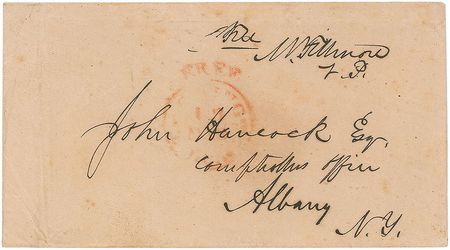 Free
M. Fillmore
V. P.
FREE
John Hancock Esq.
Comptrollers Office
Albany
N.Y.